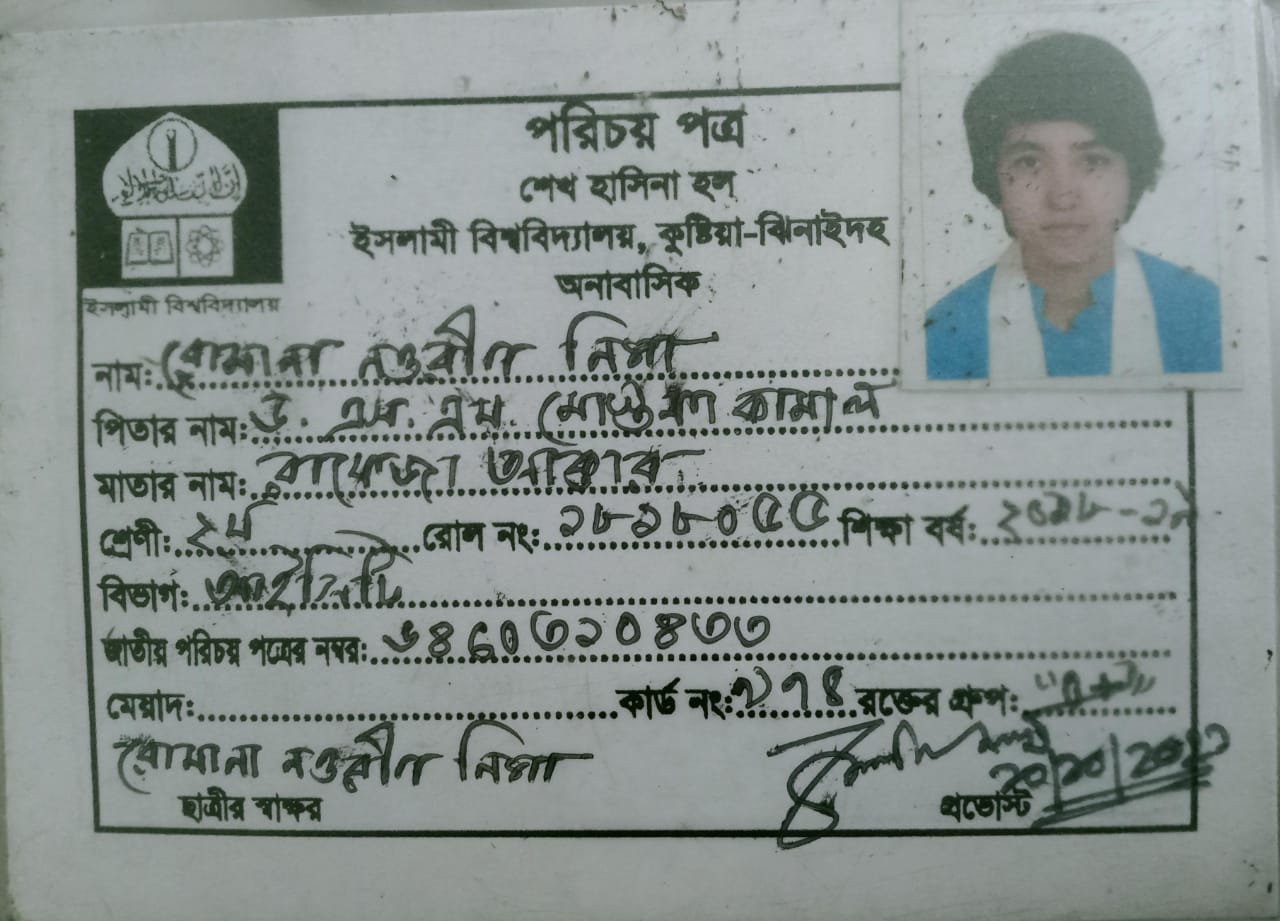 পরিচয় পত্র
শেখ হাসিনা হল
ইসলামী বিশ্ববিদ্যালয়, কুষ্টিয়া-ঝিনাইদহ
অনাবাসিক
ইসলামী বিশ্ববিদ্যালয়
নাম: রোমানা নওরীণ নিসা
পিতার নাম: ড. এস. এম. মোস্তফা কামাল
মাতার নাম: রাফেজা আক্তার
শ্রেণী: ২য় রোল নং: ১৮১৮০৫৫ শিক্ষা বর্ষ: ২০১৮-১৯
বিভাগ: আইসিটি
জাতীয় পরিচয় পত্রের নম্বর: ৬৪৬০৩১০৪৩৩
মেয়াদ: কার্ড নং: রক্তের গ্রুপ:
রোমানা নওরীণ নিসা
ছাত্রীর স্বাক্ষর
প্রভোস্ট